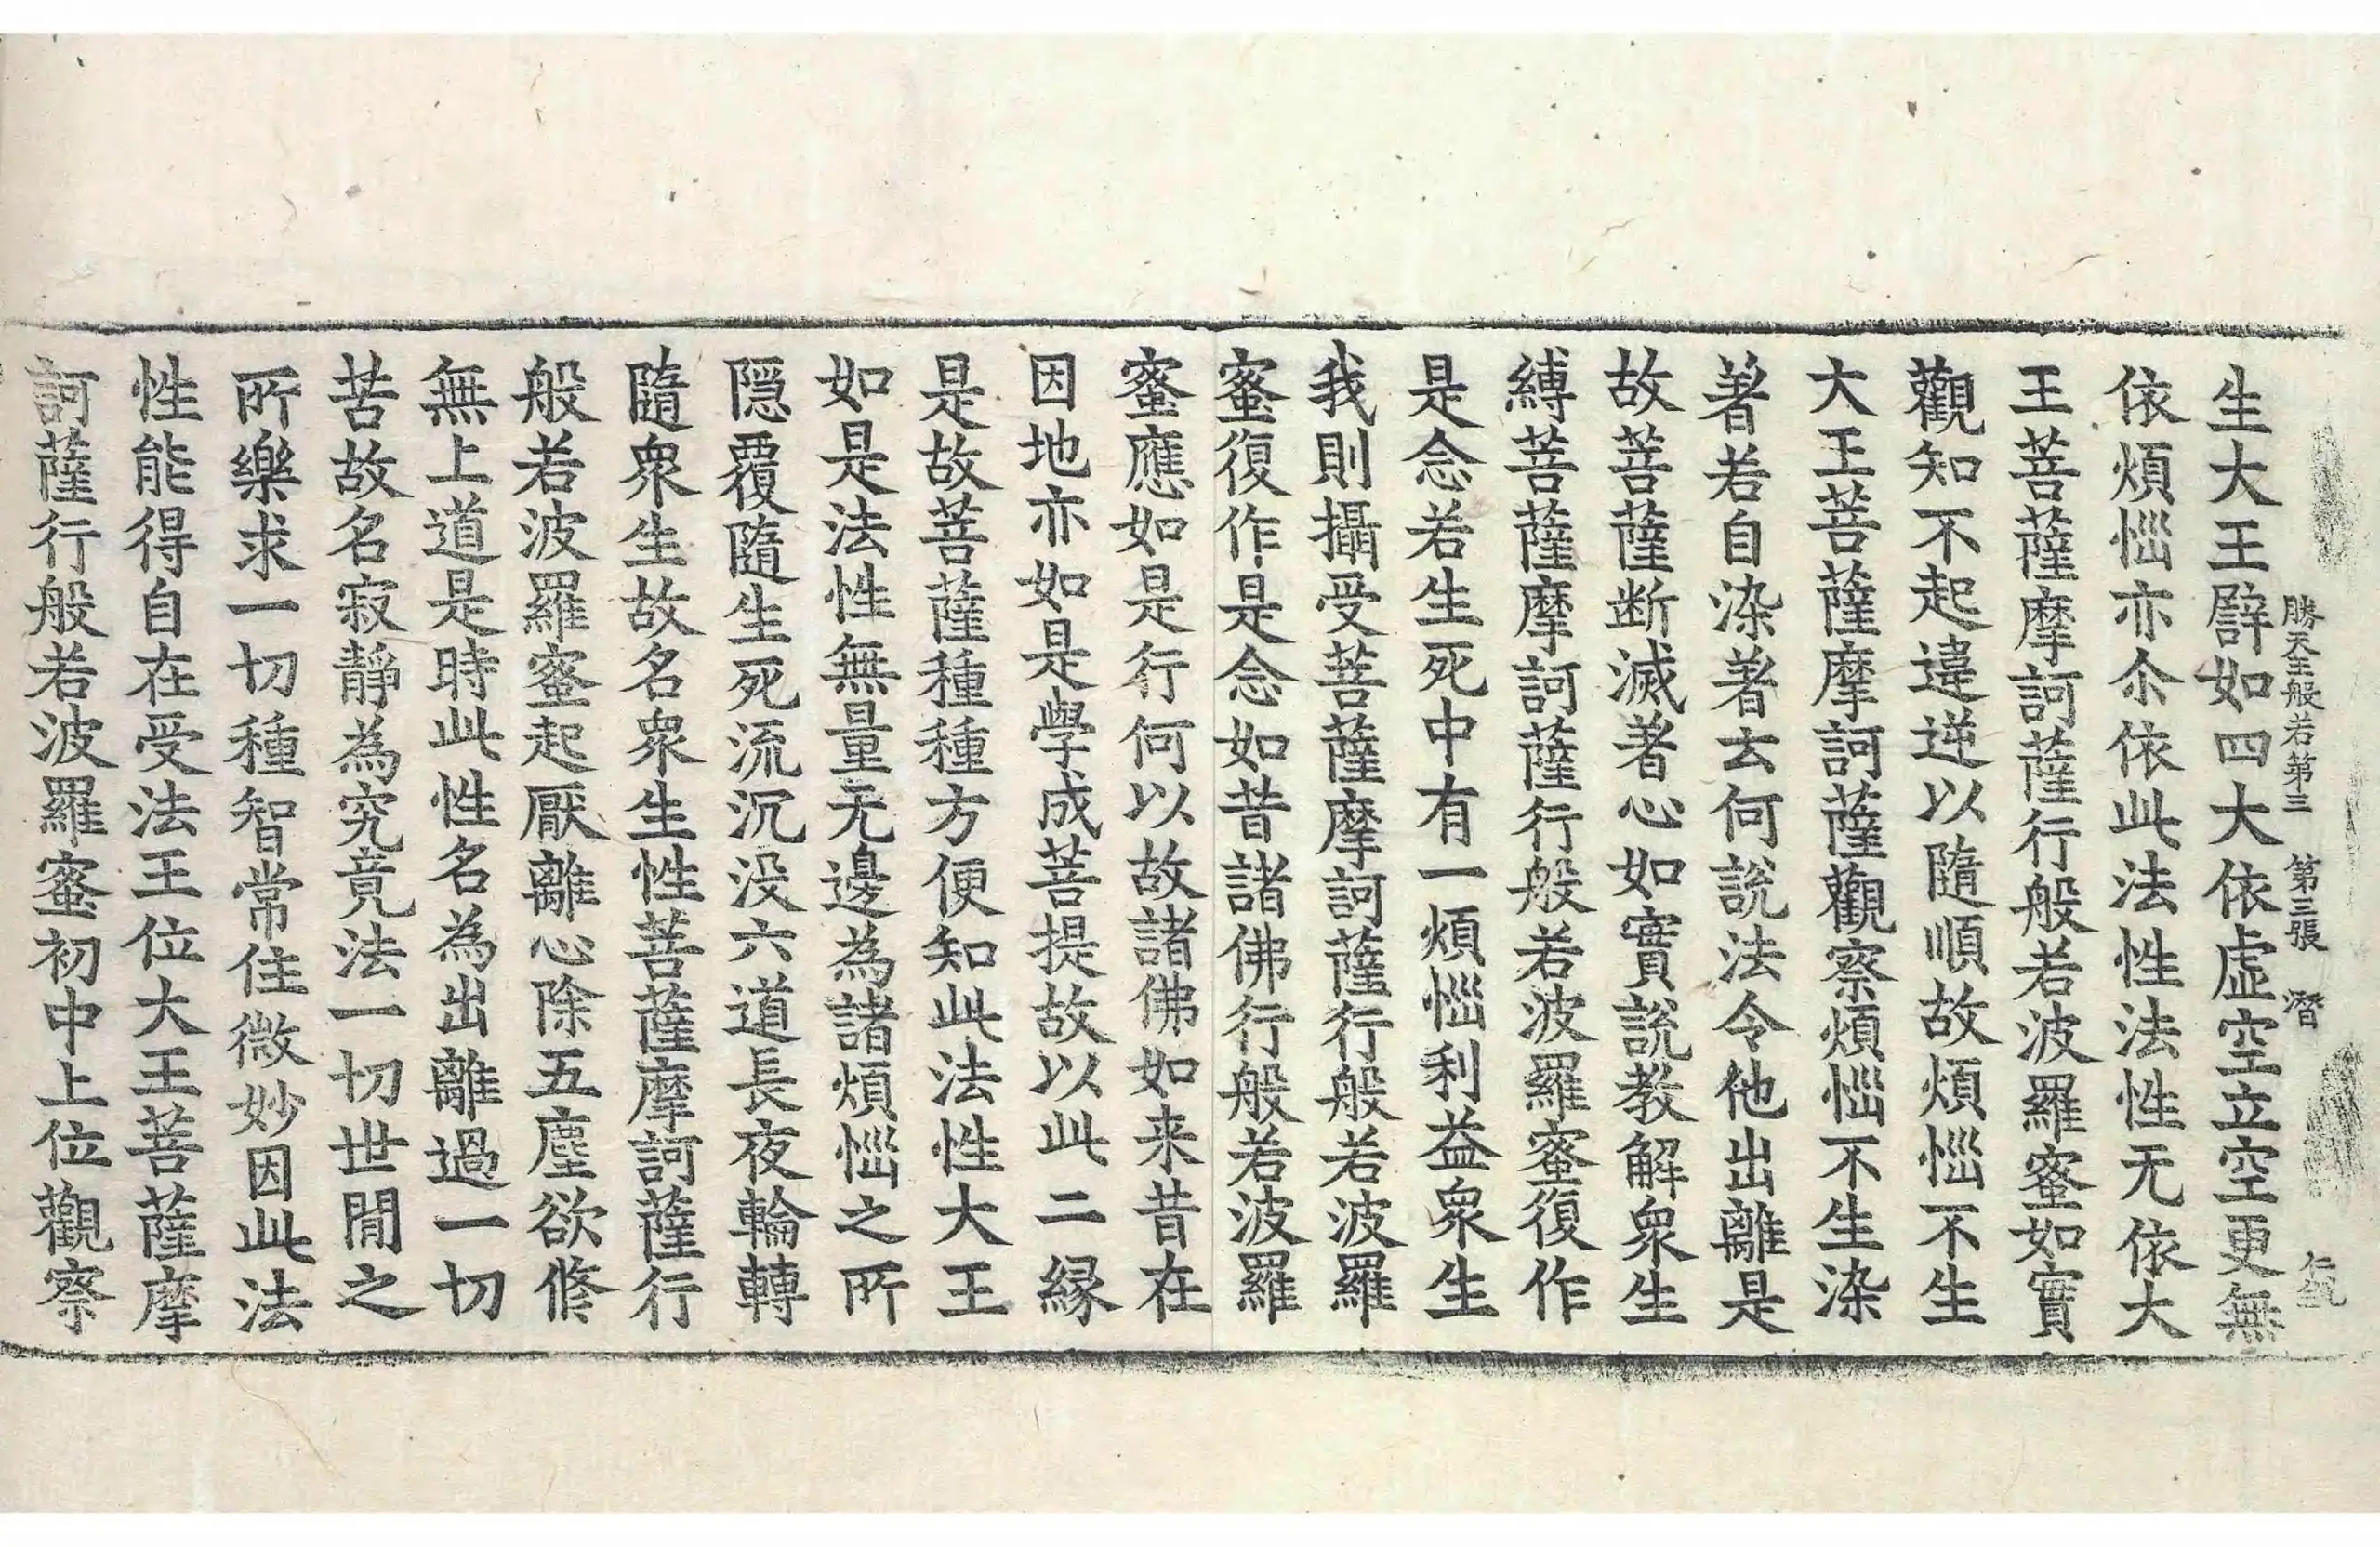 勝天王般若第三　第三張　潛
生大王譬如四大依虛空立空更無
依煩惱亦尒依此法性法性无依大
王菩薩摩訶薩行般若波羅蜜如實
觀知不起違逆以隨順故煩惱不生
大王菩薩摩訶薩觀察煩惱不生染
著若自染著云何說法令他出離是
故菩薩断滅著心如實說教解眾生
縛菩薩摩訶薩行般若波羅蜜復作
是念若生死中有一煩惱利益眾生
我則攝受菩薩摩訶薩行般若波羅
蜜復作是念如昔諸佛行般若波羅
蜜應如是行何以故諸佛如来昔在
因地亦如是學成菩提故以此二縁
是故菩薩種種方便知此法性大王
如是法性無量无邊為諸煩惱之所
隠覆隨生死流沉没六道長夜輪轉
隨眾生故名眾生性菩薩摩訶薩行
般若波羅蜜起厭離心除五塵欲修
無上道是時此性名為出離過一切
苦故名寂靜為究竟法一切世閒之
所樂求一切種智常住微妙因此法
性能得自在受法王位大王菩薩摩
訶薩行般若波羅蜜初中上位觀察